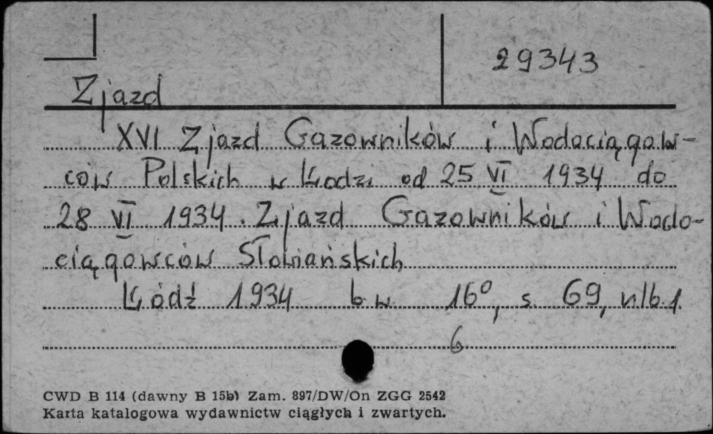 29343
Zjazd
XVI Zjazd Gazowników i Wodociągow-
ców Polskich w Łodzi od 25 VI 1934 do
28 VI 1934. Zjazd Gazowników i Wodo-
ciągowców Słowiańskich
Łódź 1934 b w 16°, s. 69, nlb. 1.
6
CWD B 114 (dawny B 15b) Zam. 897/DW/On ZGG 2542
Karta katalogowa wydawnictw ciągłych i zwartych.